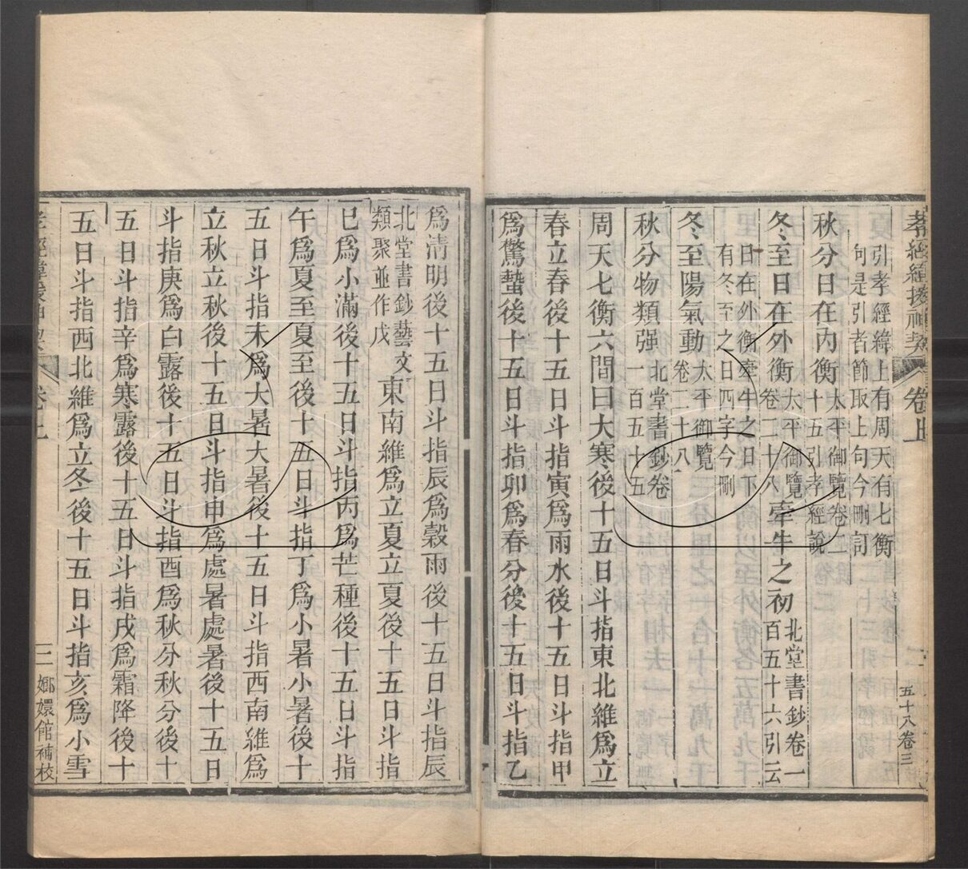 孝經緯援神契 卷上 五十八卷三
引孝經緯上有周天有七衡
句是引者節取上句今刪
秋分日在內衡太平御覽卷二
十五引孝經說
冬至日在外衡太平御覽
卷二十八牽牛之初北堂書鈔卷一
百五十六引云
日在外衡牽牛之日下
有冬至之日四字今刪
冬至陽氣動太平御覽
卷二十八
秋分物類强北堂書鈔卷
一百五十五
周天七衡六間曰大寒後十五日斗指東北維爲立
春立春後十五日斗指寅爲雨水後十五日斗指甲
爲驚蟄後十五日斗指卯爲春分後十五日斗指乙
爲清明後十五日斗指辰爲穀雨後十五日斗指辰
北堂書鈔藝文
類聚並作戊東南維爲立夏立夏後十五日斗指
巳爲小滿後十五日斗指丙爲芒種後十五日斗指
午爲夏至夏至後十五日斗指丁爲小暑小暑後十
五日斗指未爲大暑大暑後十五日斗指西南維爲
立秋立秋後十五日斗指申爲處暑處暑後十五日
斗指庚爲白露後十五日斗指酉爲秋分秋分後十
五日斗指辛爲寒露後十五日斗指戌爲霜降後十
五日斗指西北維爲立冬後十五日斗指亥爲小雪
孝經緯援神契 卷上 三 嫏嬛館補校